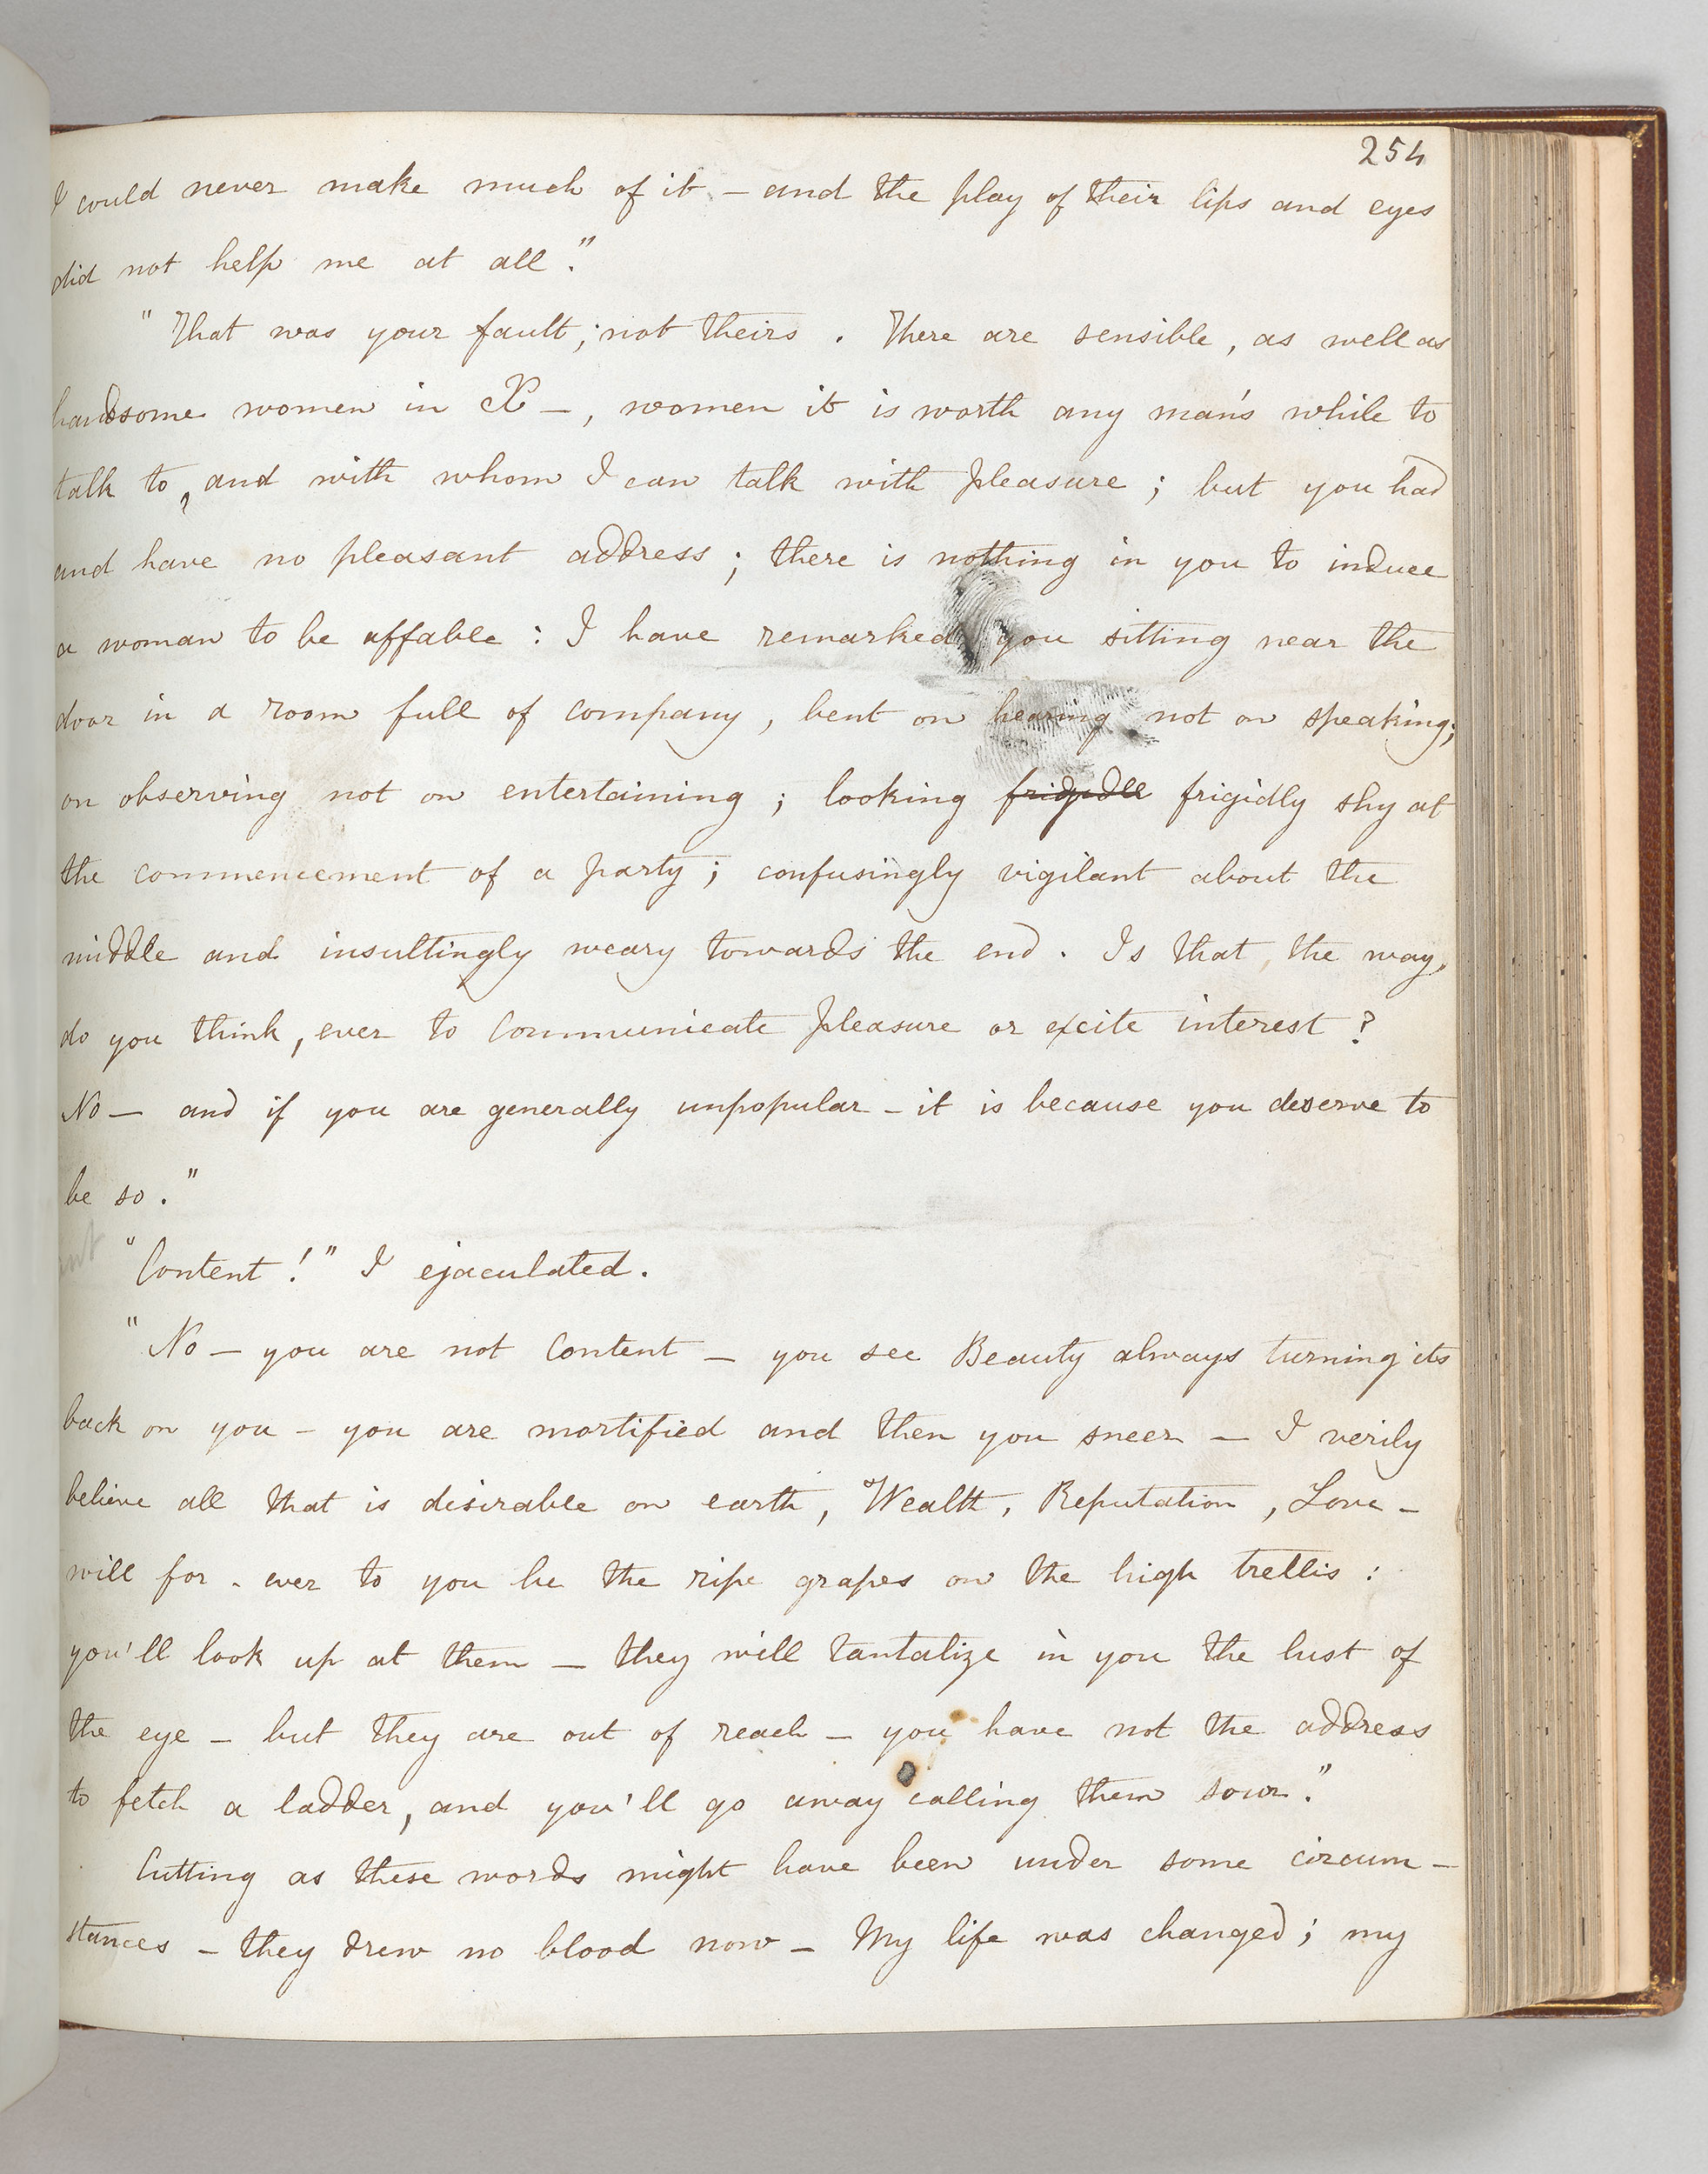 254
I could never make much of it – and the play of their lips and eyes
did not help me at all."
"That was your fault; not theirs. There are sensible, as well as
handsome women in X—, women it is worth any man's while to
talk to, and with whom I can talk with pleasure; but you had
and have no pleasant address; there is nothing in you to induce
a woman to be affable: I have remarked you sitting near the
door in a room full of company, bent on hearing not on speaking;
on observing not on entertaining; looking frigidly shy at
the commencement of a party; confusingly vigilant about the
middle and insultingly weary towards the end. Is that, the way,
do you think, ever to communicate pleasure or excite interest?
No — and if you are generally unpopular – it is because you deserve to
be so."
"Content!" I ejaculated.
"No – you are not content – you see Beauty always turning its
back on you – you are mortified and then you sneer – I verily
believe all that is desirable on earth, Wealth, Reputation, Love –
will for-ever to you be the ripe grapes on the high trellis:
you'll look up at them – they will tantalize in you the lust of
the eye – but they are out of reach – you have not the address
to fetch a ladder, and you'll go away calling them sour."
Cutting as these words might have been under some circum–
stances – they drew no blood now – My life was changed; my